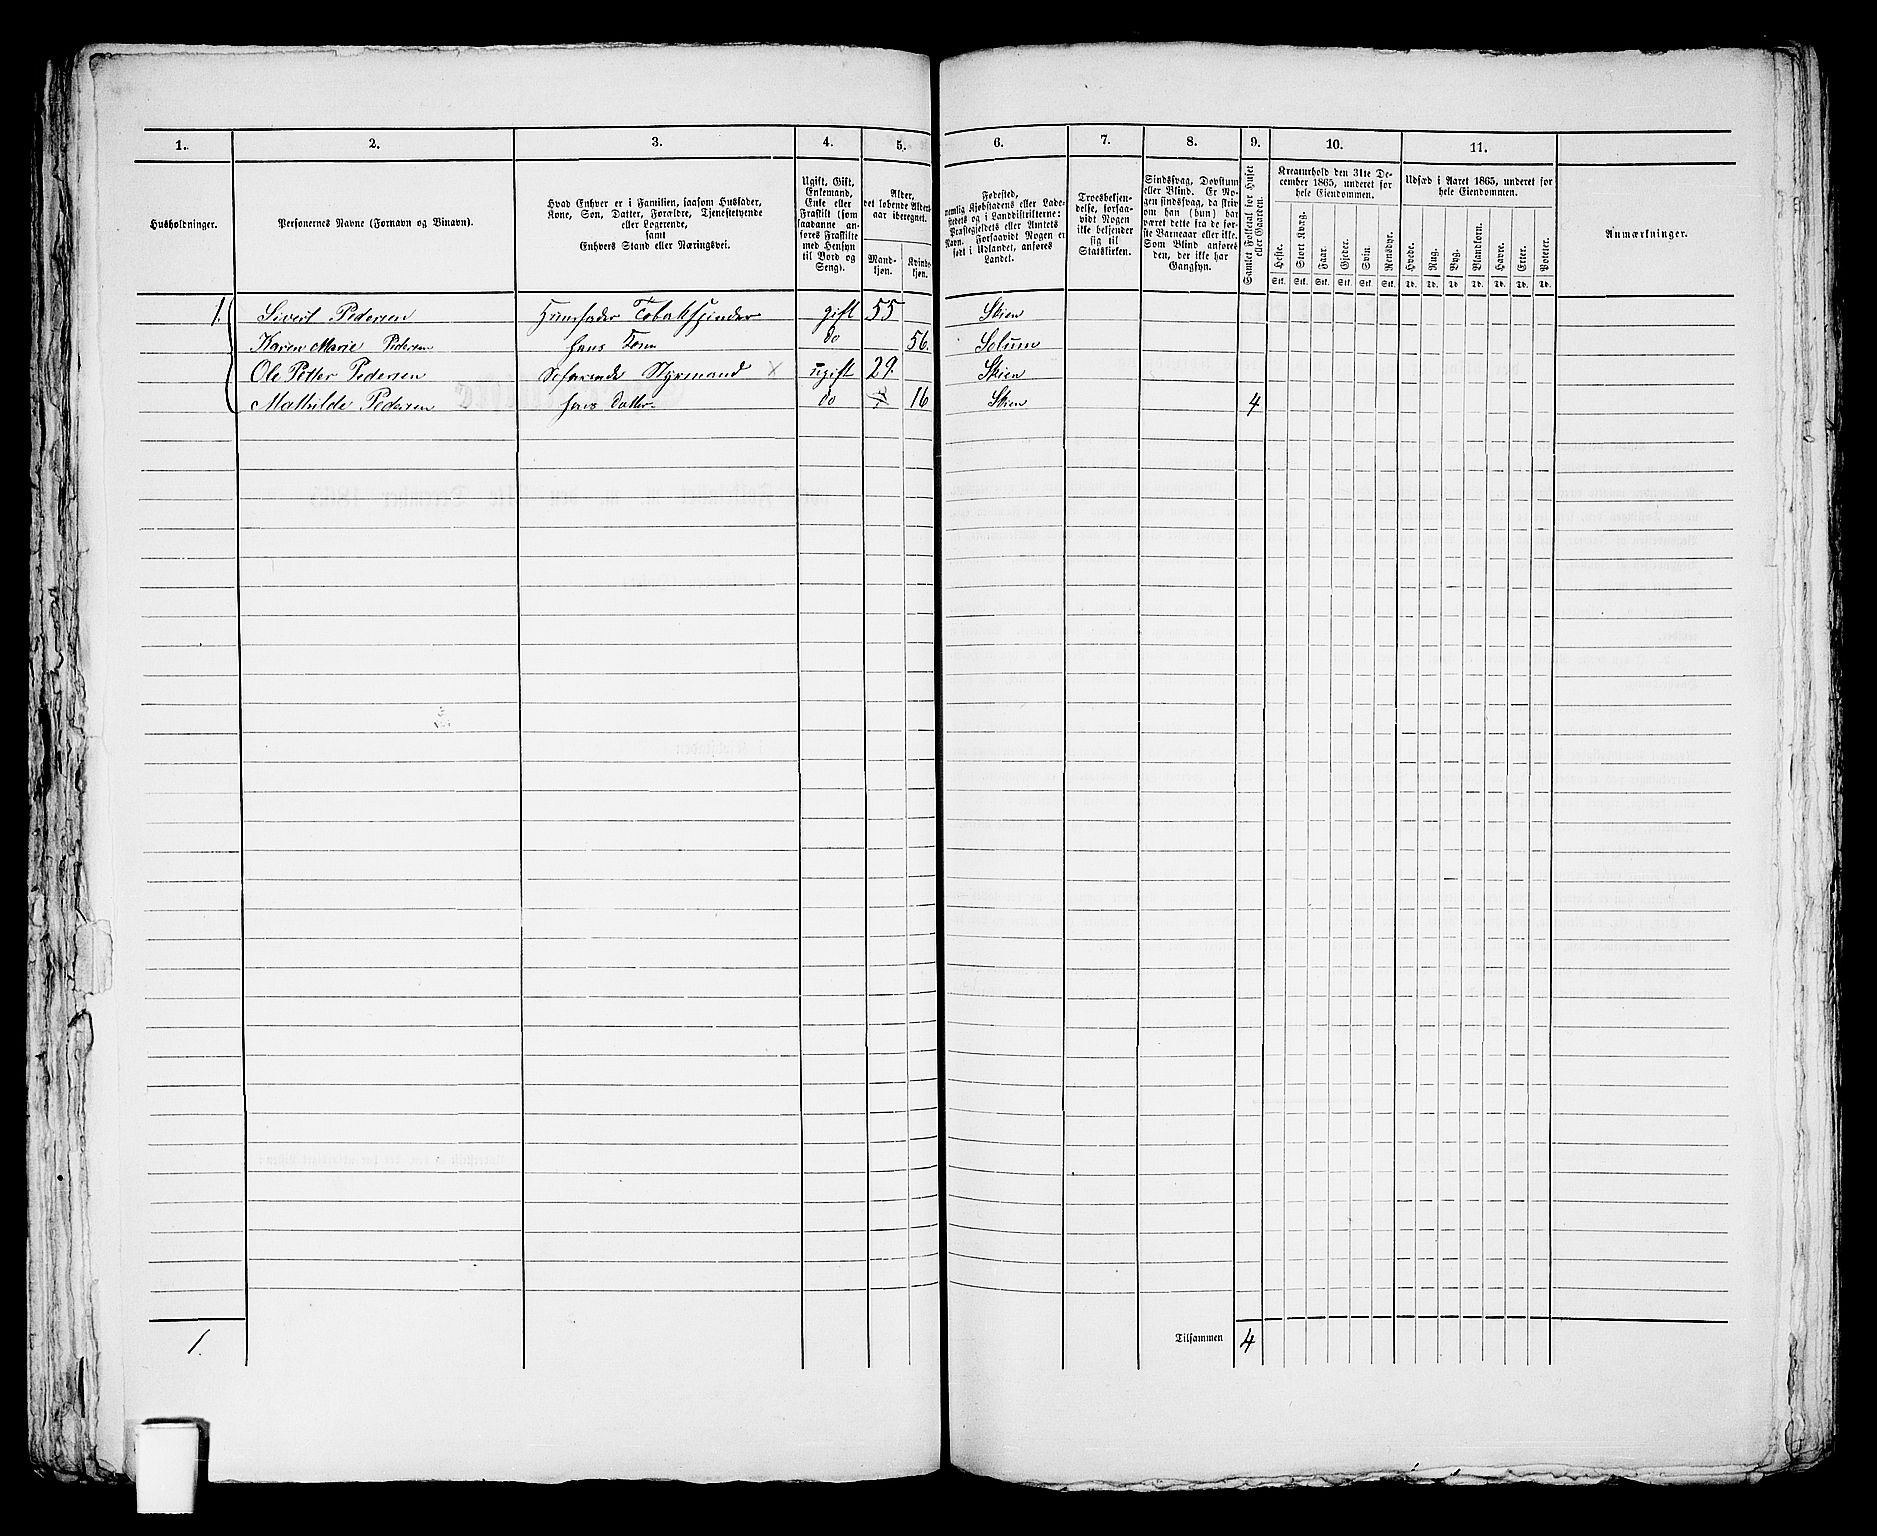 1. 2. 3. 4. 5. 6. 7. 8. 9. 10. 11.
Husholdninger.
Personernes Navne (Fornavn og Binavn).
Hvad Enhver er i Familien, saasom Husfader,
Kone, Søn, Datter, Forældre, Tjenestetyende
eller Logerende,
samt
Enhvers Stand eller Næringsvei.
Ugift, Gift,
Enkemand,
Enke eller
Fraskilt (som
saadanne an-
føres Fraskilte
med Hensyn
til Bord og
Seng).
Alder,
det løbende Alders-
aar iberegnet.
Mand-
kjøn.
Kvind-
kjøn.
Fødested,
nemlig Kjøbstadens eller Lade-
stedets og i Landdistrikterne:
Præstegjeldets eller Amtets
Navn. Forsaavidt Nogen er
født i Udlandet, anføres
Landet.
Troesbekjen-
delse, forsaa-
vidt Nogen
ikke bekjender
sig til
Statskirken.
Sindssvag, Døvstum
eller Blind. Er No-
gen sindssvag, da skriv
om han (hun) har
været dette fra de før-
ste Barneaar eller ikke.
Som Blind anføres
den, der ikke har
Gangsyn.
Samlet Folketal for Huset
eller Gaarden.
Kreaturhold den 31te De-
cember 1865, underet for
hele Eiendommen.
Heste. Stort Kvæg. Faar. Gjeder. Svin. Rensdyr.
Stk. Stk. Stk. Stk. Stk. Stk.
Udsæd i Aaret 1865, underet for
hele Eiendommen.
Hvede. Rug. Byg. Blandkorn. Havre. Erter. Poteter.
Td. Td. Td. Td. Td. Td. Td.
Anmærkninger.
1. Sivert Pedersen Huusfader Tobaksspinder gift 55 Skien
Karen Marie Pedersen hans Kone do 56. Solum
Ole Petter Pedersen Søfarende Styrmand × ugift 29. Skien
Mathilde Pedersen hans Datter do 16 Skien 4
1. Tilsammen 4